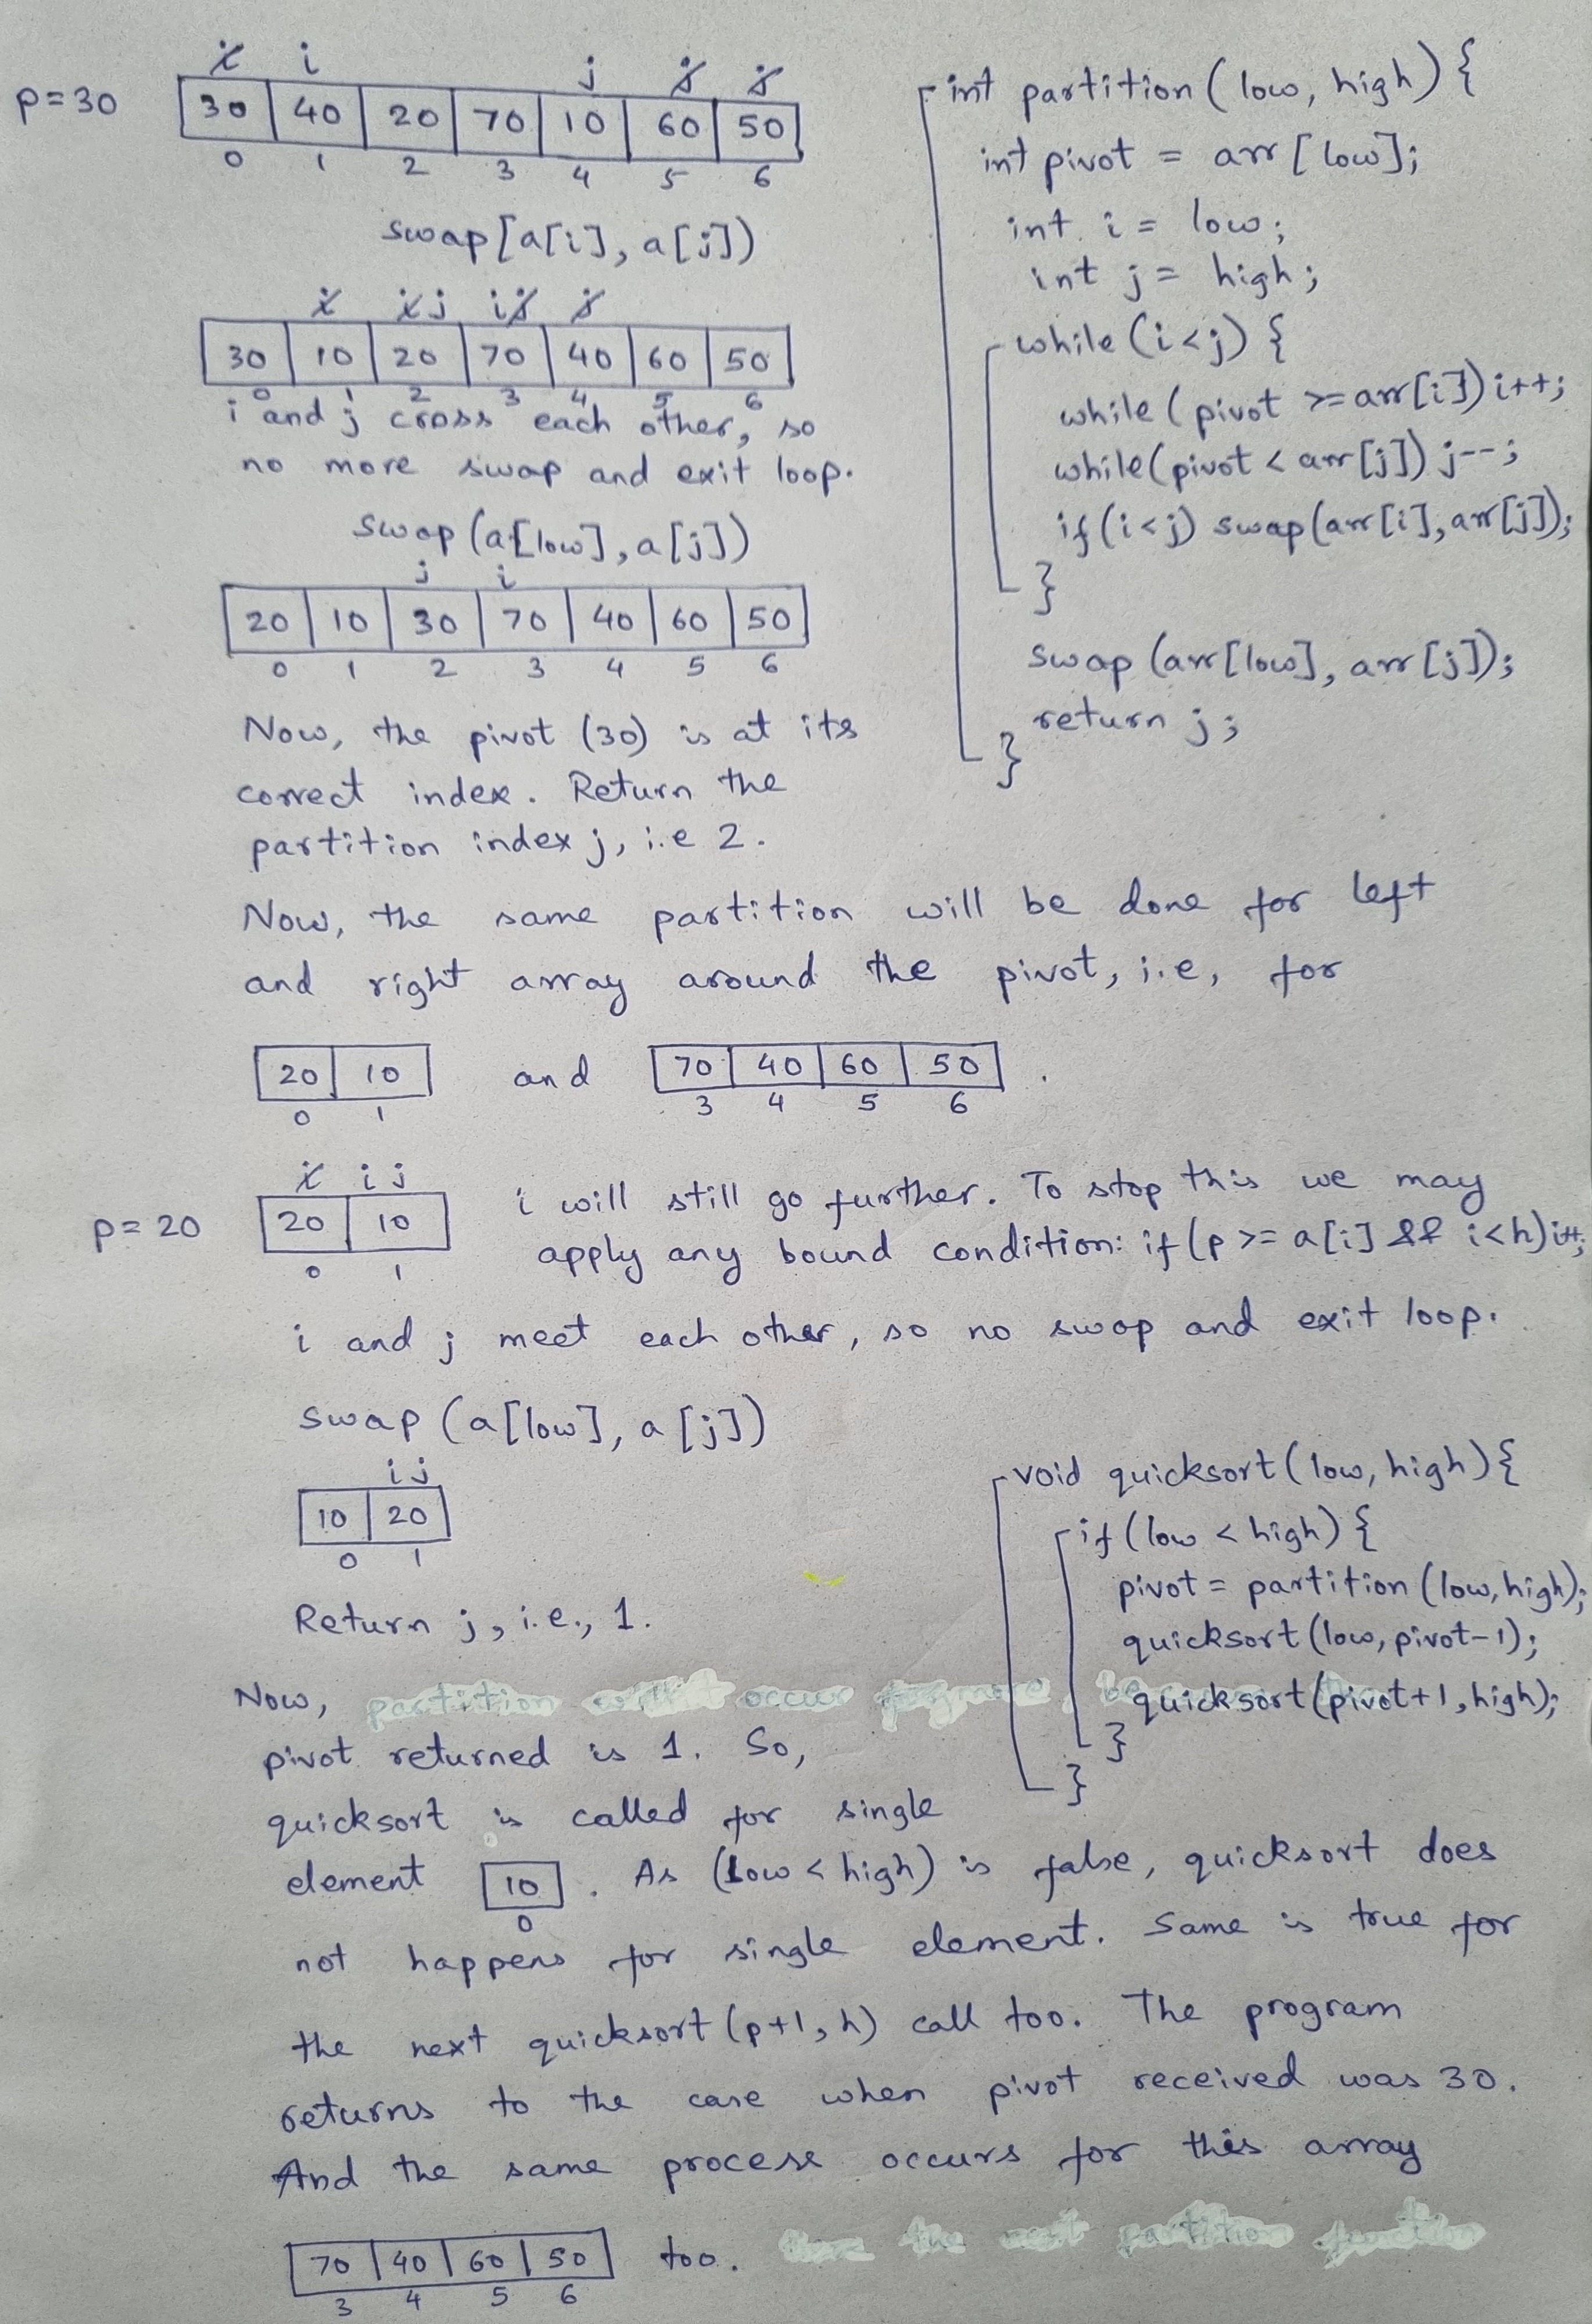 i i j j j
p=30 30 40 20 70 10 60 50
0 1 2 3 4 5 6
swap[a[i], a[j])
i i j i j j
30 10 20 70 40 60 50
0 1 2 3 4 5 6
i and j cross each other, so
no more swap and exit loop.
swap (a[low], a[j])
j i
20 10 30 70 40 60 50
0 1 2 3 4 5 6
Now, the pivot (30) is at its
correct index. Return the
partition index j, i.e 2.
int partition ( low, high) {
int pivot = arr [ low];
int i = low;
int j = high;
while (i<j) {
while ( pivot >=arr[i]) i++;
while(pivot < arr[j]) j--;
if (i<j) swap(arr[i], arr[j]);
}
swap (arr[low], arr [j]);
return j;
}
Now, the same partition will be done for left
and right array around the pivot, i.e, for
20 10 and 70 40 60 50 .
0 1 3 4 5 6
i i j
p= 20 20 10
0 1
i will still go further. To stop this we may
apply any bound condition: if (p >= a[i] && i<h) i++;
i and j meet each other, so no swap and exit loop.
swap (a[low], a [j])
i j
10 20
0 1
Return j, i.e., 1.
void quicksort ( low, high) {
if ( low < high) {
pivot = partition (low, high);
quicksort (low, pivot-1);
quicksort (pivot+1, high);
}
}
Now,
pivot returned is 1. So,
quicksort is called for single
element 10 . As (low < high) is false, quicksort does
0
not happens for single element. Same is true for
the next quicksort (p+1, h) call too. The program
returns to the case when pivot received was 30.
And the same process occurs for this array
70 40 60 50 too.
3 4 5 6